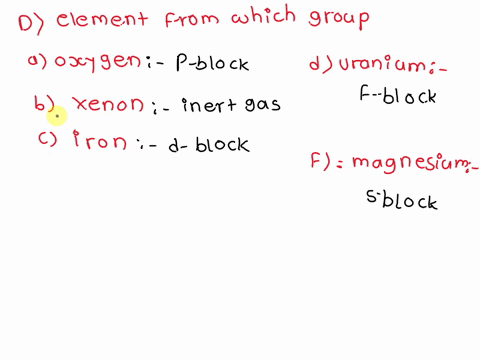 D) element from which group
a) oxygen :- P-block
b) xenon :- inert gas
c) iron :- d-block
d) uranium :-
F-block
F) = magnesium :-
S-block